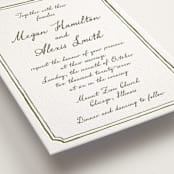 Together with their
families
Megan Hamilton
and
Alexis Smith
request the honour of your presence
at their marriage
Sunday, the month of October
two thousand twenty-seven
at six o'clock in the evening
Mount Zion Church
Chicago, Illinois
Dinner and dancing to follow